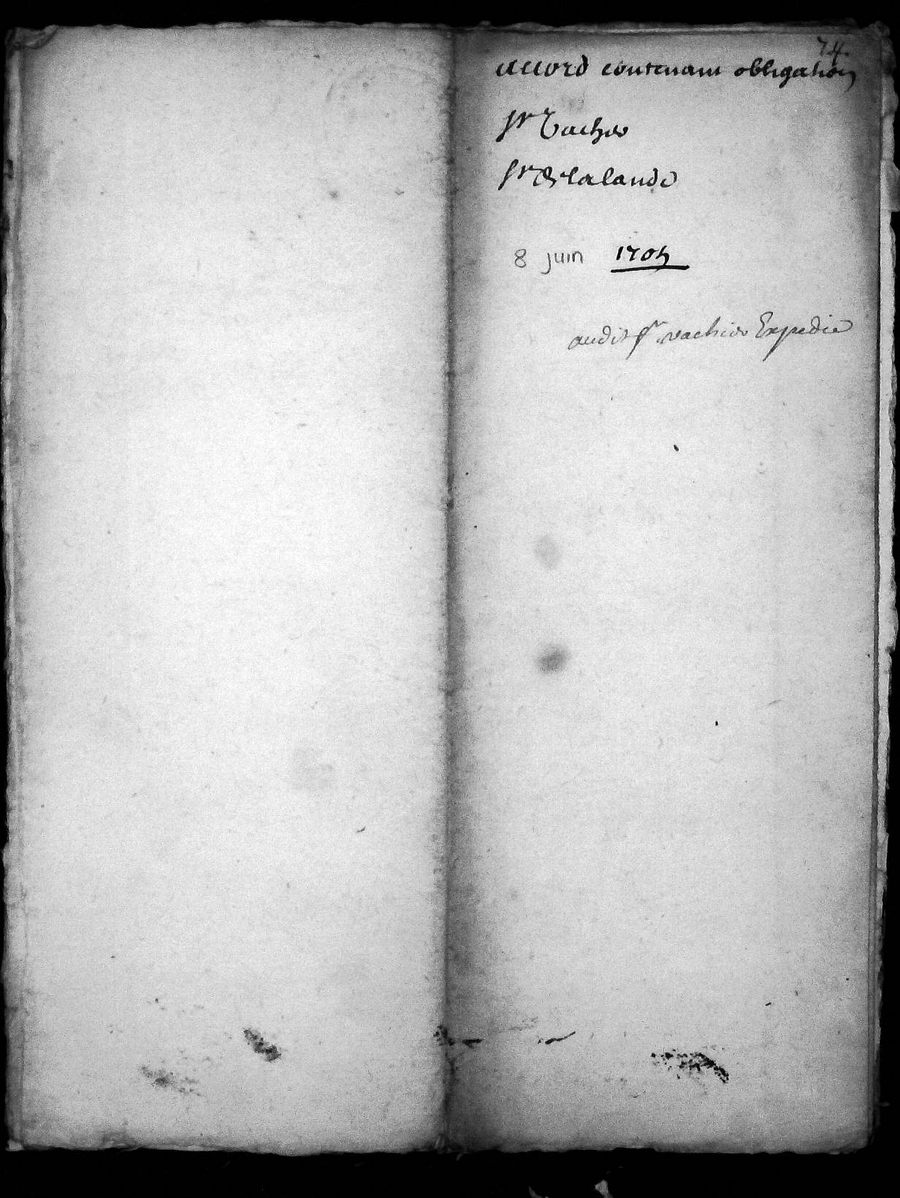 74.
accord contenant obligation
Sr Vachié
Sr De lalande
8 juin 1705
audit Sr vachié Expedié